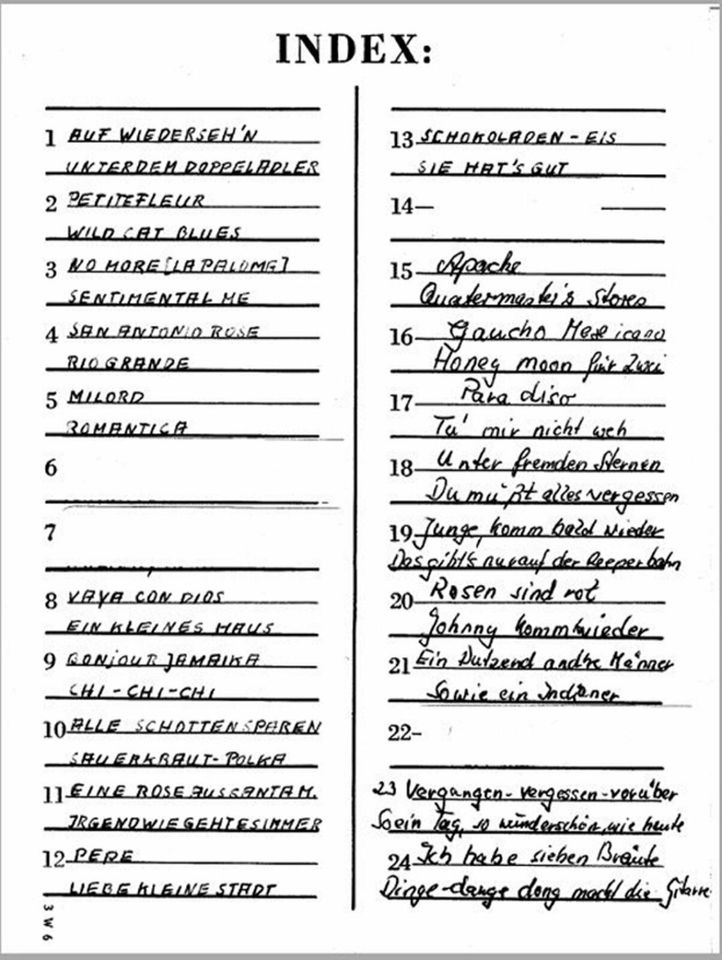 INDEX:
1 AUF WIEDERSEH'N
UNTER DEM DOPPELADLER
2 PETITE FLEUR
WILD CAT BLUES
3 NO MORE [LA PALOMA]
SENTIMENTAL ME
4 SAN ANTONIO ROSE
RIO GRANDE
5 MILORD
ROMANTICA
6
7
8 VAYA CON DIOS
EIN KLEINES HAUS
9 BONJOUR JAMAIKA
CHI-CHI-CHI
10 ALLE SCHOTTEN SPAREN
SAUERKRAUT-POLKA
11 EINE ROSE AUS SANTA M.
IRGENDWIE GEHT ES IMMER
12 PEPE
LIEBE KLEINE STADT
3 W 6
13 SCHOKOLADEN-EIS
SIE HAT'S GUT
14
15 Apache
Quatermaster's Stores
16 Gaucho Mexicano
Honey moon für zwei
17 Paradiso
Tu' mir nicht weh
18 Unter fremden Sternen
Du mußt alles vergessen
19 Junge, komm bald wieder
Das gibt's nur auf der Reeperbahn
20 Rosen sind rot
Johnny komm wieder
21 Ein Dutzend and're Männer
So wie ein Indianer
22
23 Vergangen-vergessen-vorüber
So ein Tag, so wunderschön, wie heute
24 Ich habe sieben Bräute
Dinge-dange dong macht die Gitarre